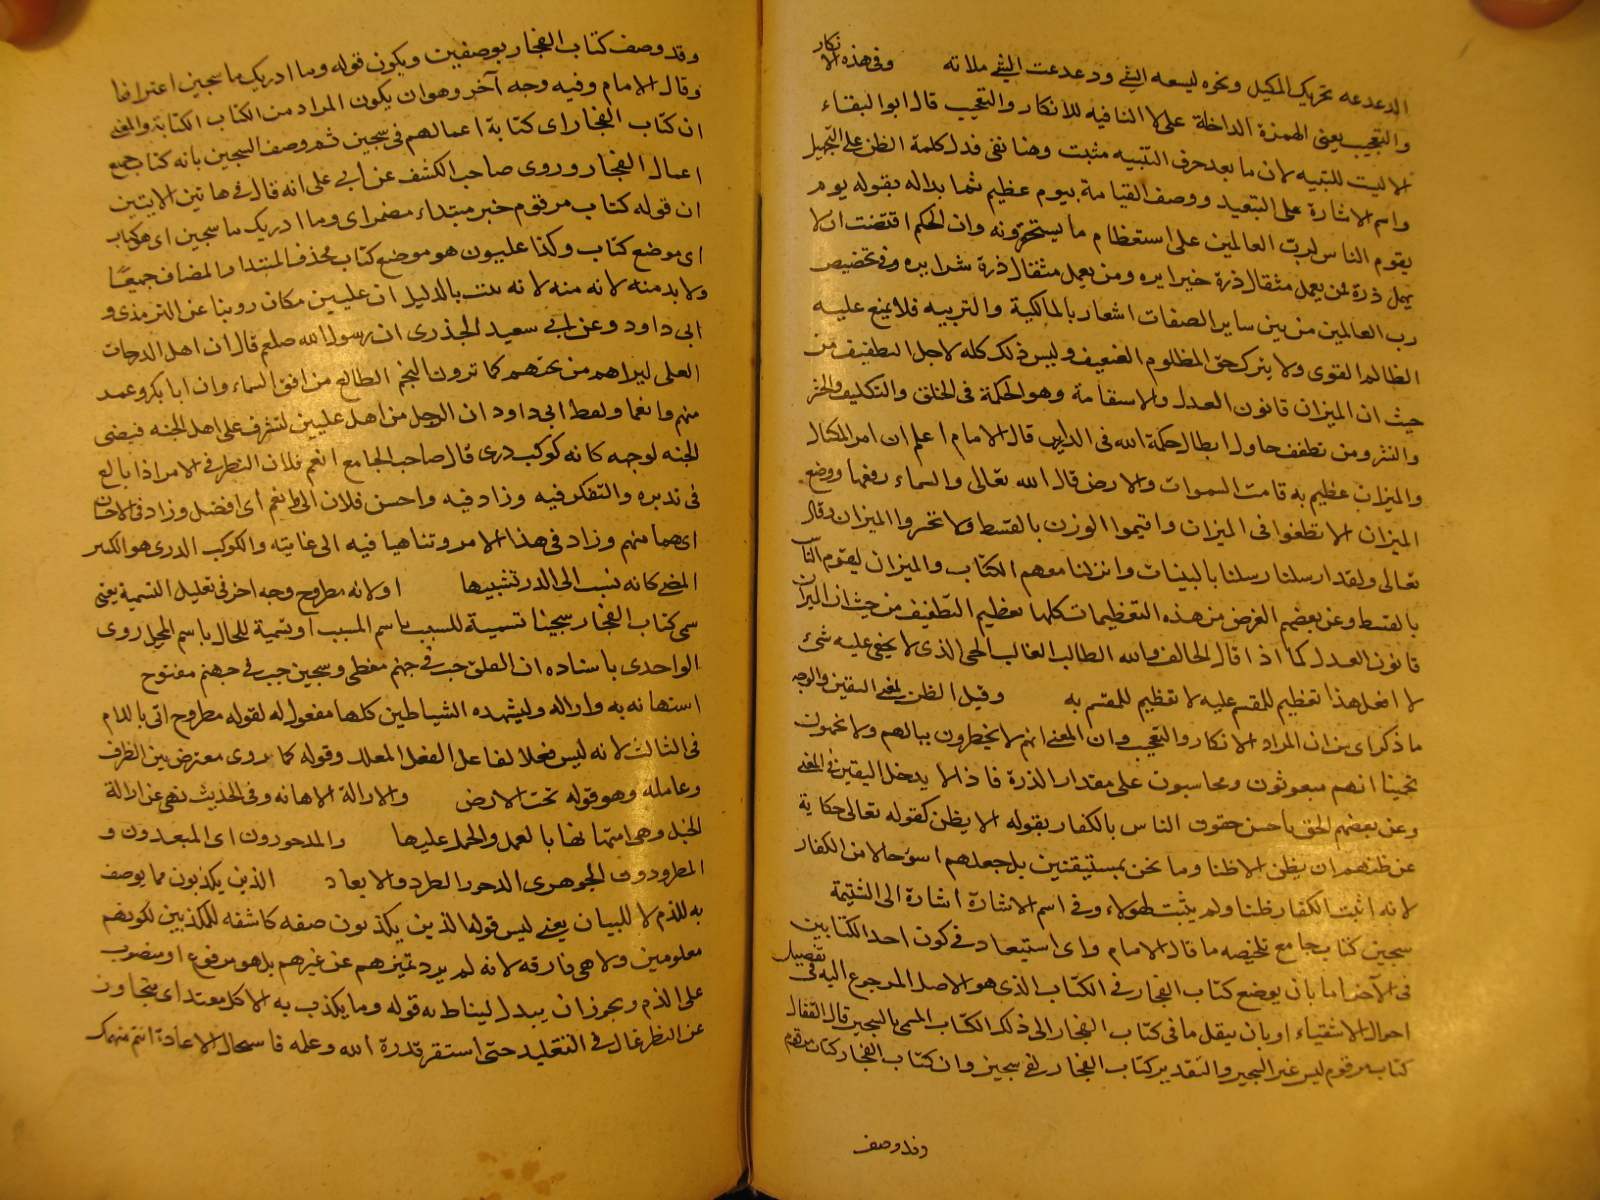 الدعدعه تحريك المكيل ونحوه ليسعه الشي ودعدعت الشي ملاته وفى هذه الا نكار
والتعجيب يعنى الهمزة الداخلة على لا النافيه للانكار والتعجيب قال ابو البقاء
الا ليست للتنبيه لان ما بعد حرف التنبيه مثبت وهنا نفى فدل كلمة الظن على التجهيل
واسم الاشارة على التبعيد ووصف القيامة بيوم عظيم ثم ابداله بقوله يوم
يقوم الناس لرب العالمين على استعظام ما يستحقرونه وان الحكم اقتضت ان لا
يهمل ذرة لمن يعمل مثقال ذرة خيرا يره ومن يعمل مثقال ذرة شرا يره وفى تخصيص
رب العالمين من بين ساير الصفات اشعار بالمالكية والتربيه فلا يمنع عليه
الظالم القوى ولا يترك حق المظلوم الضعيف وليس ذلك كله لاجل التطفيف من
حيث ان الميزان قانون العدل والاستقامة وهو الحكمة فى الخلق والتكليف والحشر
والنشر ومن تطفف حاول ابطال حكمة الله فى الدارين قال الامام اعلم ان امر المكيال
والميزان عظيم به قامت السموات والارض قال الله تعالى والسماء رفعها ووضع
الميزان الا تطغوا فى الميزان واقيموا الوزن بالقسط ولا تخسروا الميزان وقال
تعالى ولقد ارسلنا رسلنا بالبينات وانزلنا معهم الكتاب والميزان ليقوم الناس
بالقسط وعن بعضهم الغرض من هذه التعظيمات كلها تعظيم التطفيف من حيث ان الميزان
قانون العدل كما اذا قال الحالف والله الطالب الغالب الحى الذى لا يخفى عليه شئ
لا افعل هذا تعظيم للمقسم عليه لا تعظيم للمقسم به وقيل الظن بمعنى اليقين والوجه
ما ذكر اى من ان المراد الانكار والتعجب وان المعنى انهم لا يخطرون ببالهم ولا يخمنون
تخمينا انهم مبعوثون ومحاسبون على مقدار الذرة فاذا لا يدخل اليقين فى المعنى
وعن بعضهم الحق باحسن حقوق الناس بالكفار بقوله الا يظن كقوله تعالى حكاية
عن ظنهم ان يظن الا ظنا وما نحن بمستيقنين بل جعلهم اسوء حالا من الكفار
لانه اثبت للكفار ظنا ولم يثبت لهولاء وفى اسم الاشارة اشارة الى الشتيمة
سجين كتاب جامع تلخيصه ما قال الامام واى استبعاد فى كون احد الكتابين
فى الآخر اما بان يوضع كتاب الفجار فى الكتاب الذى هو الاصل المرجوع اليه فى تفصيل
احوال الاشقياء او بان ينقل ما فى كتاب الفجار الى ذلك الكتاب المسمى بالسجين قال القفال
كتاب مرقوم ليس غير السجين والتقدير كتاب الفجار لفى سجين وان كتاب الفجار كتاب مرقوم
وقد وصف
وقد وصف كتاب الفجار بوصفين ويكون قوله وما ادريك ما سجين اعتراضا
وقال الامام وفيه وجه آخر وهو ان يكون المراد من الكتاب الكتابة والمعنى
ان كتاب الفجار اى كتابة اعمالهم فى سجين ثم وصف السجين بانه كتاب جميع
اعمال الفجار وروى صاحب الكشف عن ابى على انه قال فى هاتين الايتين
ان قوله كتاب مرقوم خبر مبتداء مضمر اى وما ادريك ما سجين اى هو كتاب
اى موضع كتاب وكذا عليون هو موضع كتاب محذف المبتدا والمضاف جميعا
ولا بد منه لانه منه لانه بالدليل ان عليين مكان روينا عن الترمذى و
ابى داود وعن ابى سعيد الخدرى ان رسول الله صلعم قال ان اهل الدرجات
العلى ليراهم من تحتهم كما ترون النجم الطالع من افق السماء وان ابا بكر وعمر
منهم وانعما ولفظ ابى داود ان الرجل من اهل عليين لتشرف على اهل الجنه فيضى
الجنه لوجهه كانه كوكب درى قال صاحب الجامع انعم فلان النظر فى الامر اذا بالغ
فى تدبره والتفكر فيه وزاد فيه واحسن فلان الى وانعم اى افضل وزاد فى الاحسان
اى هما منهم وزاد فى هذا الامر وتناهيا فيه الى غايته والكوكب الدرى هو الكبير
المضى كانه نسب الى الدر تشبيها او لانه مطروح وجه اخر فى تعليل التسمية يعنى
سمى كتاب الفجار سجينا تسمية للسبب باسم المسبب او تسمية للحال باسم المحل روى
الواحدى باسناده ان الفلق جب فى جهنم مغطى وسجين جب فى جهنم مفتوح
استهانه به واذاله وليشهده الشياطين كلها مفعول له لقوله مطروح اتى باللام
فى الثالث لانه ليس فعلا لفاعل الفعل المعلل وقوله كما روى معترض بين الظرف
وعامله وهو قوله تحت الارض والاذالة الاهانه وفى الحديث نهى عن اذالة
الخيل وهى امتهانها بالعمل والحمل عليها والمدحورون اى المبعدون و
المطرودون الجوهرى الدحور الطرد والابعاد الذين يكذبون مما يوصف
به للذم لا للبيان يعنى ليس قوله الذين يكذبون صفه كاشفه للمكذبين لكونهم
معلومين ولا هى فارقه لانه لم يرد تميزهم عن غيرهم بل هو مرفوع او منصوب
على الذم ويجوز ان يبدل ليناط به قوله وما يكذب به الا كل معتد اى متجاوز
عن النظر غال فى التقليد حتى استقصر قدرة الله وعلمه فاستحال الاعادة اثيم منهمك